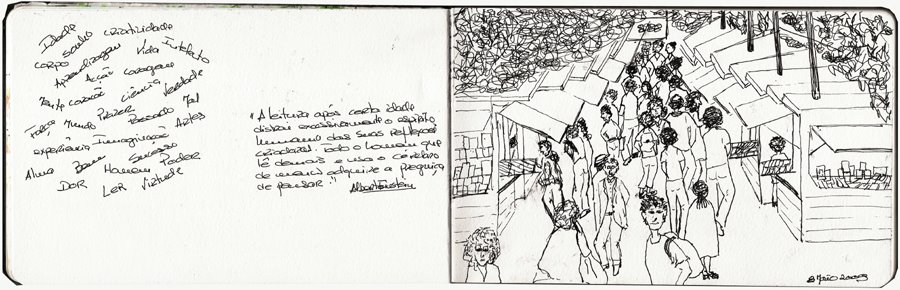 Idade
corpo sonho criatividade
Aprendizagem Vida Intelecto
Acção coragem
Mente coração ciência Verdade
Força Mundo Prazer Passado Mal
experiência Imaginação Artes
Alma Bem Sucesso
DOR Homem Poder
LER Virtude
"A leitura após certa idade
distrai excessivamente o espírito
humano das suas reflexões
criadoras. Todo o homem que
lê demais e usa o cérebro
de menos adquire a preguiça
de pensar." Albert Einstein
2009